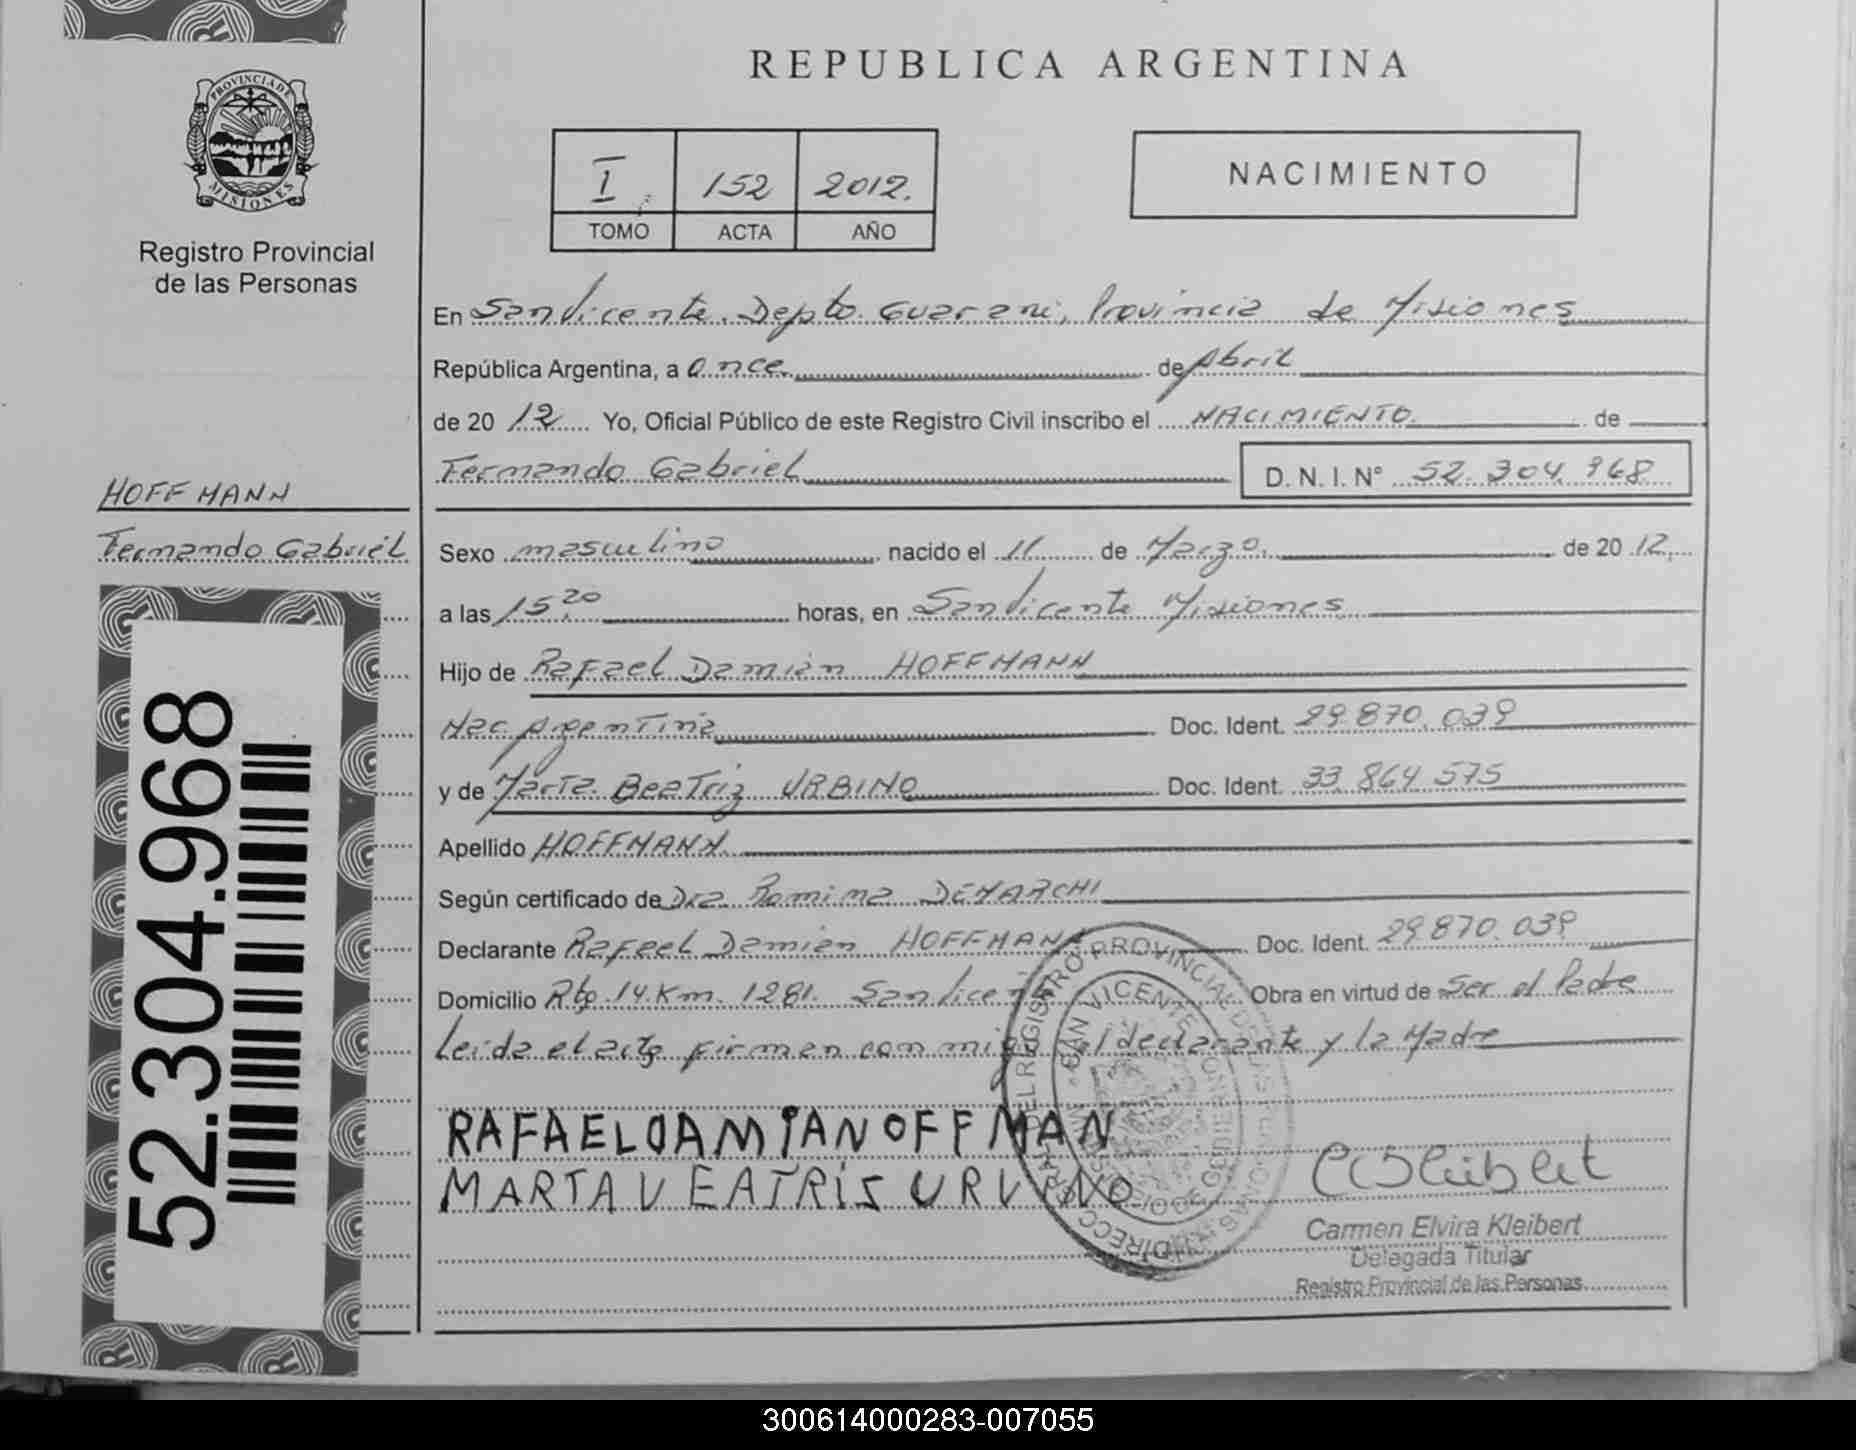 PROVINCIA DE
MISIONES
Registro Provincial
de las Personas
HOFFMANN
Fernando Gabriel
52.304.968
REPUBLICA ARGENTINA
I 152 2012.
TOMO ACTA AÑO
NACIMIENTO
En San Vicente. Depto. Guarani, Provincia de Misiones
República Argentina, a once de Abril
de 20 12 Yo, Oficial Público de este Registro Civil inscribo el NACIMIENTO de
Fernando Gabriel D. N. I. N° 52.304.968
Sexo masculino nacido el 11 de Marzo. de 20 12.
a las 15,20 horas, en San Vicente Misiones
Hijo de Rafael Damian HOFFMANN
Nac Argentina Doc. Ident. 29.870.039
y de Marta Beatriz URBINO Doc. Ident. 33.864.575
Apellido HOFFMANN
Según certificado de Dra Romina DEMARCHI
Declarante Rafael Damian HOFFMANN Doc. Ident. 29.870.039
Domicilio Rta 14 Km. 1281. San Vicente Obra en virtud de Ser el Padre
Leida el acta firman con migo el declarante y la Madre
RAFAEL DAMIAN OFFMAN
MARTA VEATRIS URVINO
SAN VICENTE
Carmen Elvira Kleibert
Delegada Titular
Registro Provincial de las Personas
300614000283-007055